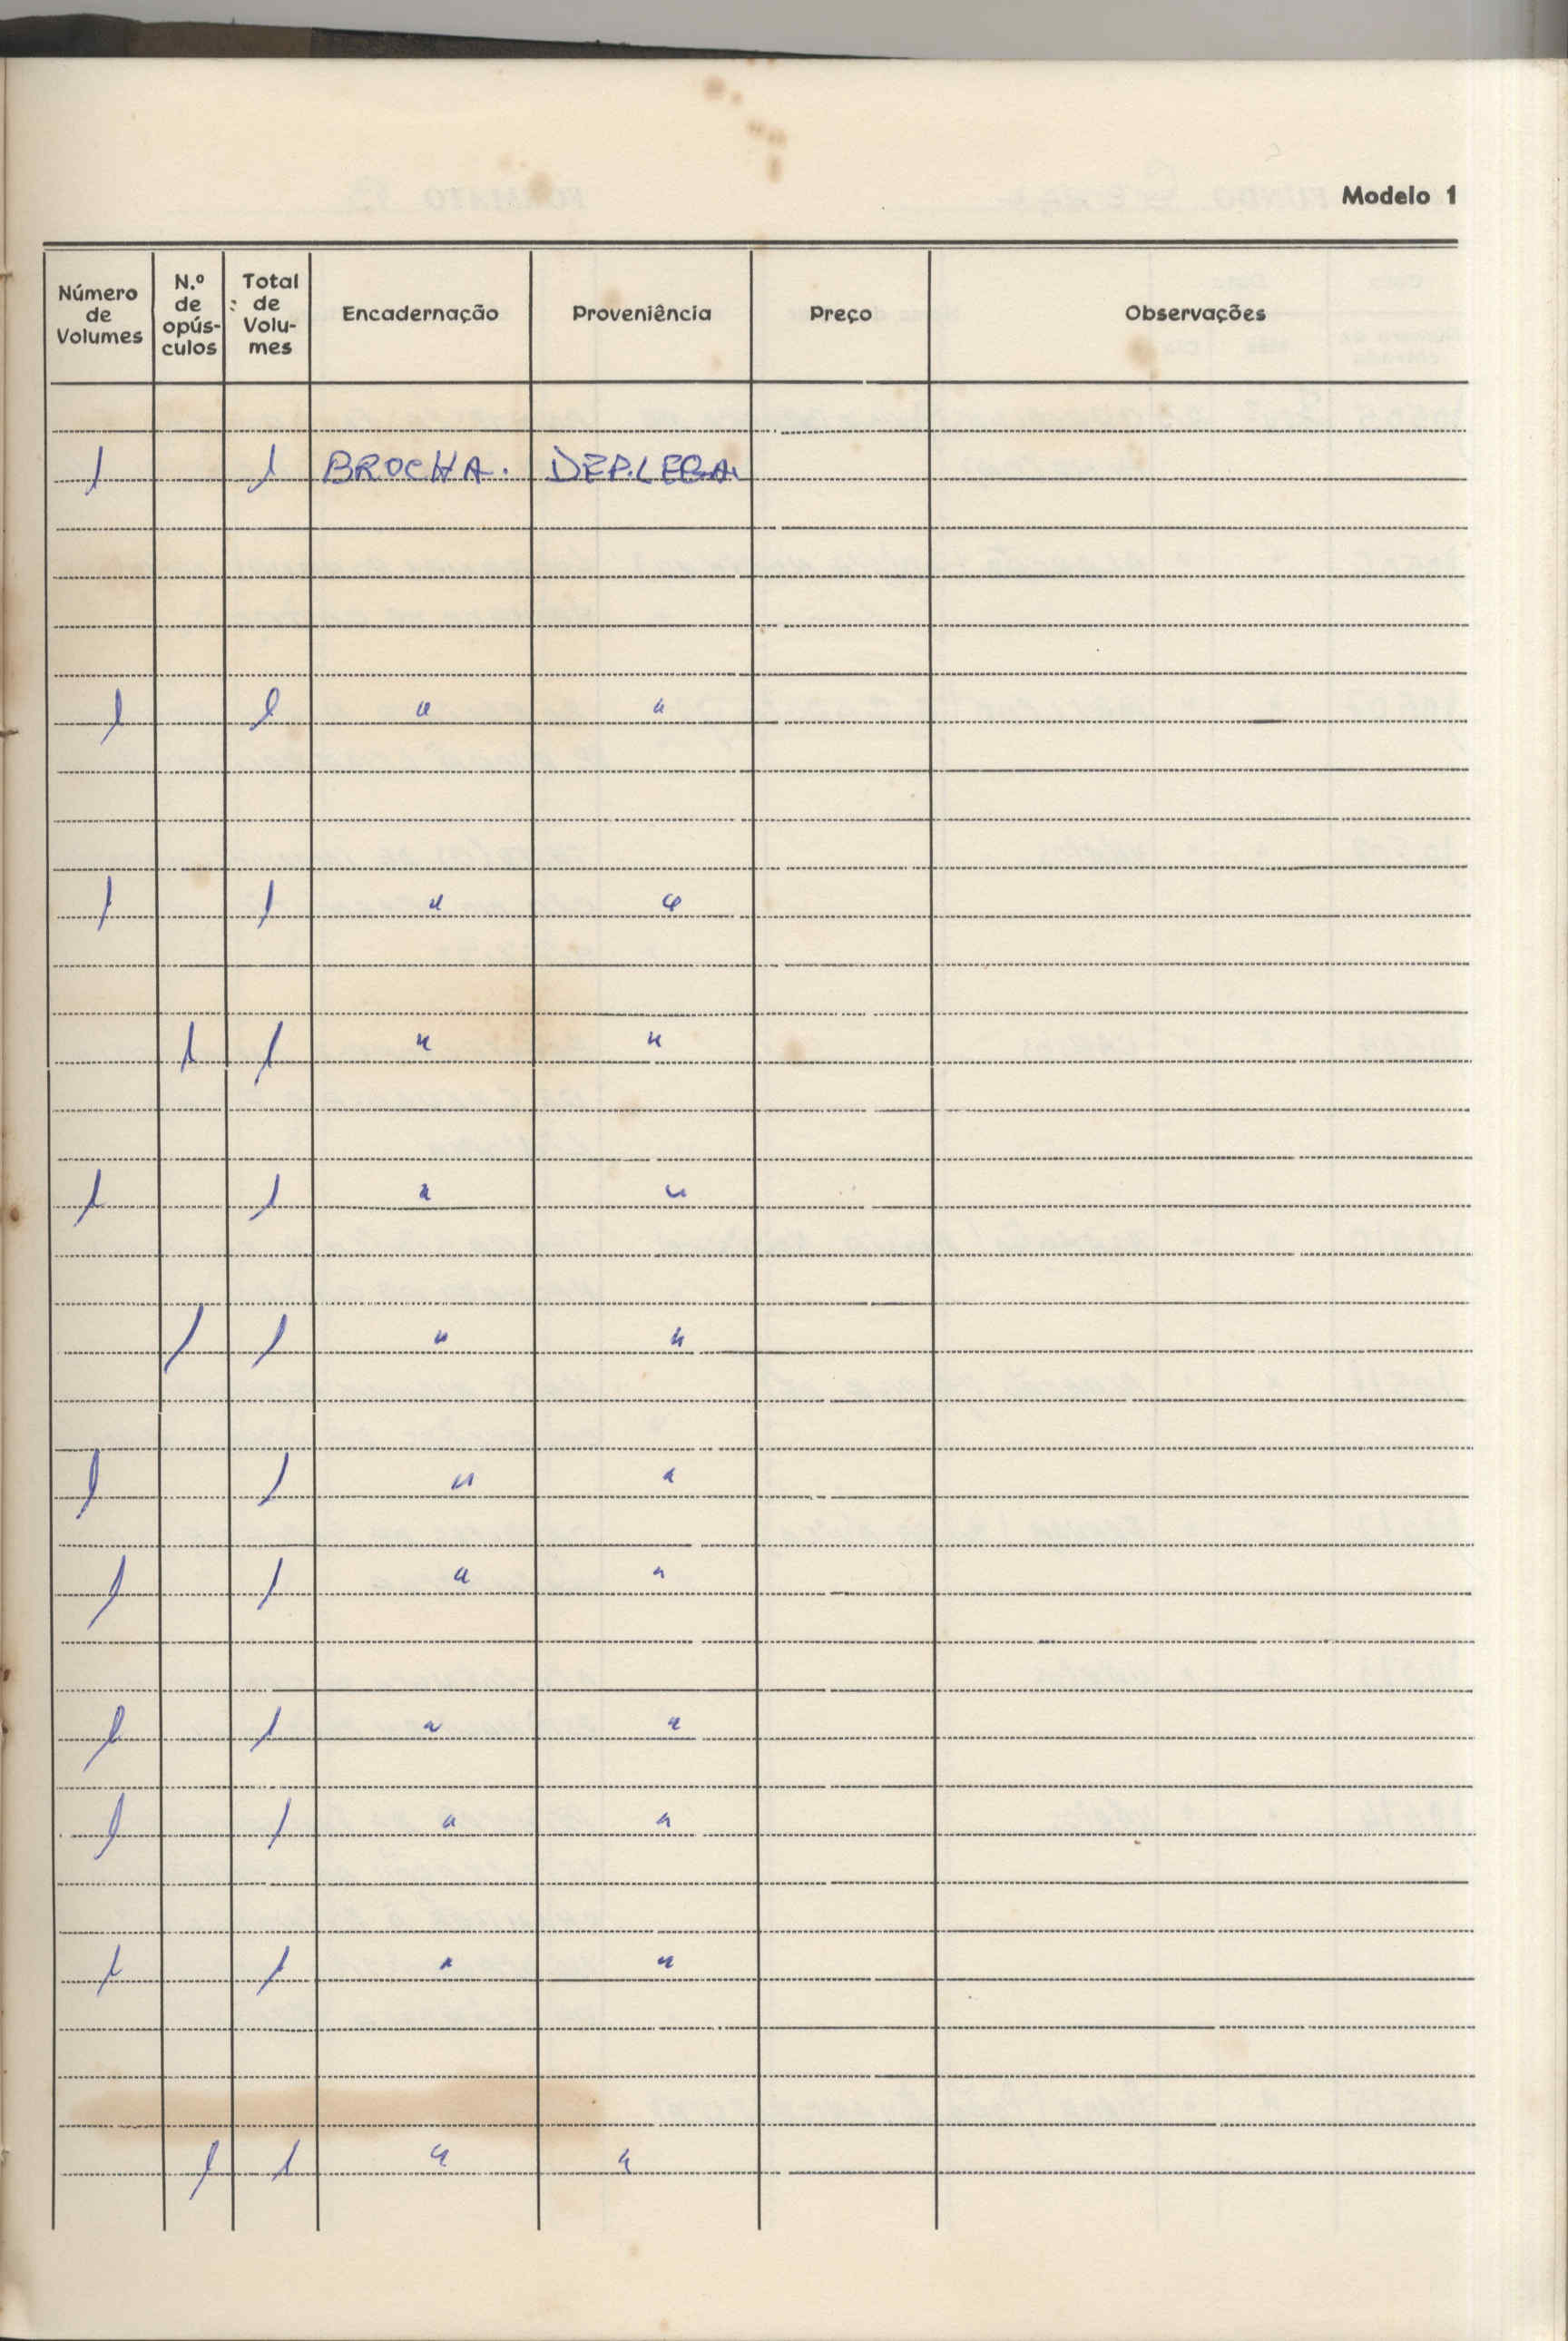 Modelo 1
Número de Volumes | N.º de opús- culos | Total de Volu- mes | Encadernação | Proveniência | Preço | Observações
1 | | 1 | BROCHA. | DEP.LEGA. | |
1 | | 1 | " | " | |
1 | | 1 | " | " | |
| 1 | 1 | " | " | |
1 | | 1 | " | " | |
| 1 | 1 | " | " | |
1 | | 1 | " | " | |
1 | | 1 | " | " | |
1 | | 1 | " | " | |
1 | | 1 | " | " | |
1 | | 1 | " | " | |
| 1 | 1 | " | " | |